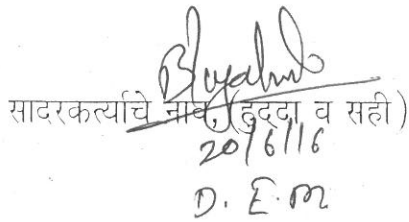 सादरकर्त्याचे नाव, (हुद्दा व सही)
20/6/16
D. E. M